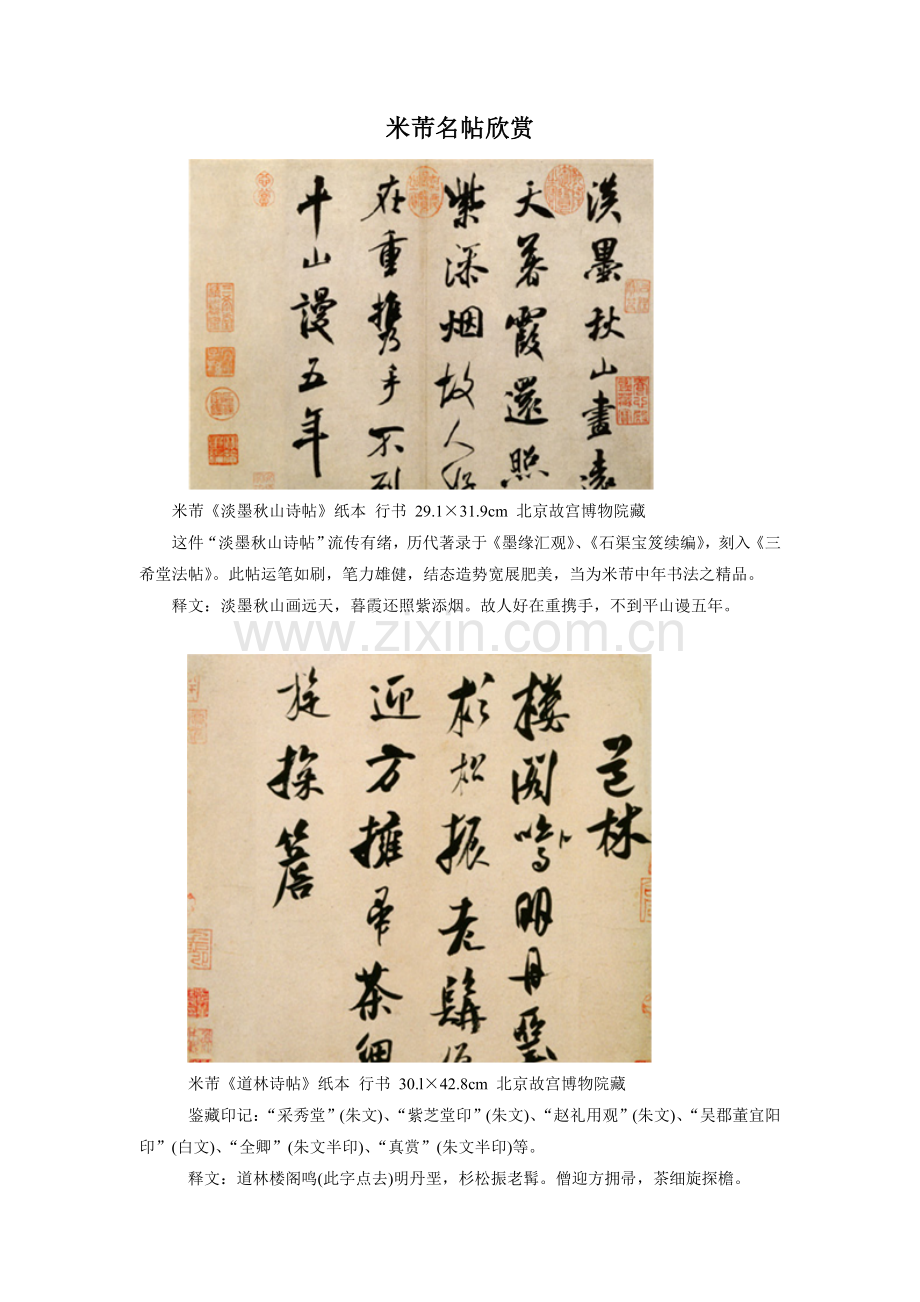 米芾名帖欣赏
淡墨秋山畫遠
天暮霞還照
紫添烟故人好
在重攜手不到
平山謾五年
米芾《淡墨秋山诗帖》纸本 行书 29.1×31.9cm 北京故宫博物院藏
这件“淡墨秋山诗帖”流传有绪，历代著录于《墨缘汇观》、《石渠宝笈续编》，刻入《三
希堂法帖》。此帖运笔如刷，笔力雄健，结态造势宽展肥美，当为米芾中年书法之精品。
释文：淡墨秋山画远天，暮霞还照紫添烟。故人好在重携手，不到平山谩五年。
www.zixin.com.cn
道林
樓閣鳴明丹堊
杉松振老髯
迎方擁帚茶細
旋探簷
米芾《道林诗帖》纸本 行书 30.l×42.8cm 北京故宫博物院藏
鉴藏印记：“采秀堂”(朱文)、“紫芝堂印”(朱文)、“赵礼用观”(朱文)、“吴郡董宜阳
印”(白文)、“全卿”(朱文半印)、“真赏”(朱文半印)等。
释文：道林楼阁鸣(此字点去)明丹垩，杉松振老髯。僧迎方拥帚，茶细旋探檐。